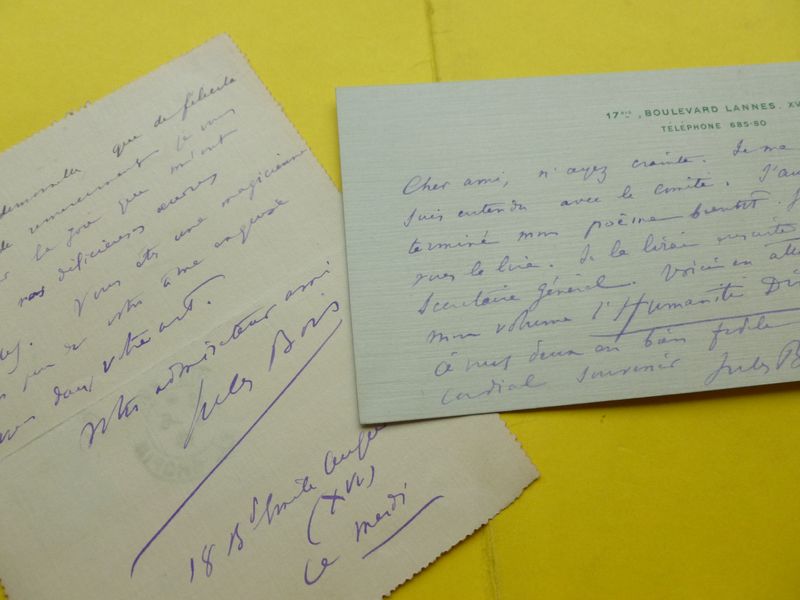 que de félicita
remerciement
la joie que m'ont
vos délicieuses œuvres
Vous êtes une magicienne
votre âme
dans votre art.
votre admirateur ami
Jules Bois
18 Bd Emile Augier
(XVI)
Ce mardi
17 BIS, BOULEVARD LANNES. XV
TÉLÉPHONE 685-50
Cher ami, n'ayez crainte. Je me
suis entendu avec le comité. J'au
terminé mon poème bientôt. J
vous le lire. Je le lirai ensuite
Secrétaire Général. Voici en atte
mon volume l'Humanité Div
A vous deux un bien fidèle
cordial souvenir Jules B